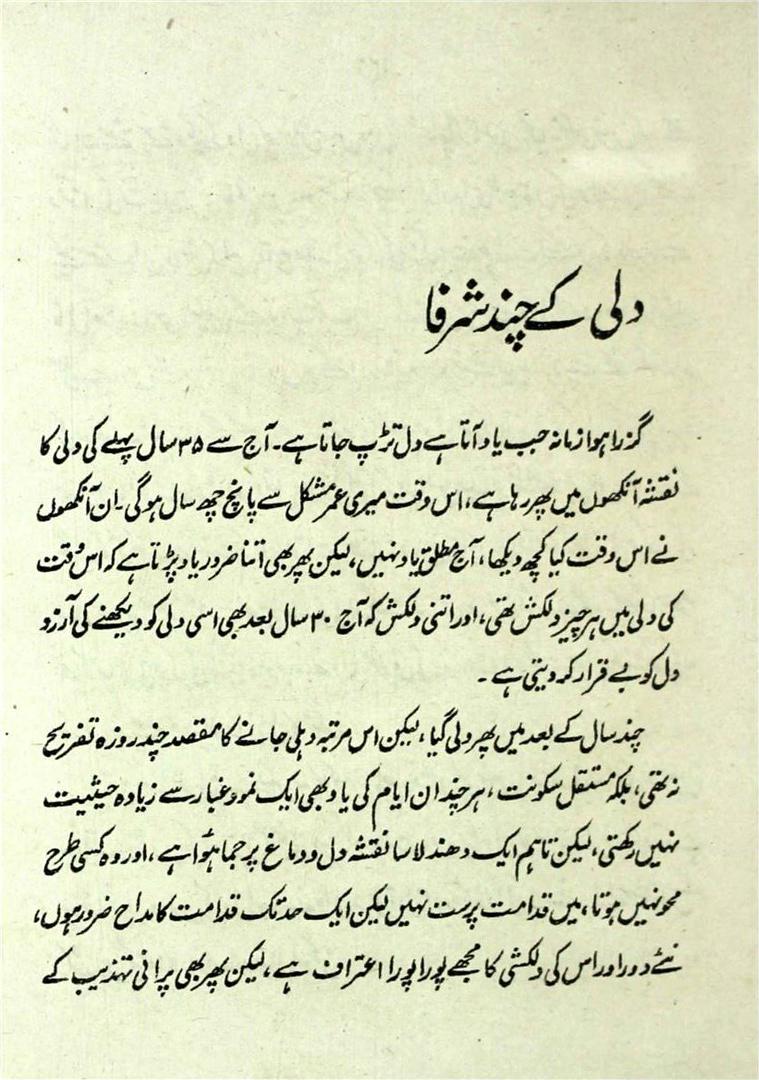 دلی کے چند شرفا
گزرا ہوا زمانہ جب یاد آتا ہے دل تڑپ جاتا ہے۔ آج سے ۳۵ سال پہلے کی دلی کا
نقشہ آنکھوں میں پھر رہا ہے، اس وقت میری عمر مشکل سے پانچ چھ سال ہوگی۔ ان آنکھوں
نے اس وقت کیا کچھ دیکھا، آج مطلق یاد نہیں، لیکن پھر بھی اتنا ضرور یاد پڑتا ہے کہ اس وقت
کی دلی میں ہر چیز دلکش تھی، اور اتنی دلکش کہ آج ۳۰ سال بعد بھی اسی دلی کو دیکھنے کی آرزو
دل کو بے قرار کر دیتی ہے۔
چند سال کے بعد میں پھر دلی گیا، لیکن اس مرتبہ دہلی جانے کا مقصد چند روزہ تفریح
نہ تھی، بلکہ مستقل سکونت، ہر چند ان ایام کی یاد بھی ایک نمود غبار سے زیادہ حیثیت
نہیں رکھتی، لیکن تاہم ایک دھندلا سا نقشہ دل و دماغ پر جما ہؤا ہے، اور وہ کسی طرح
محو نہیں ہوتا، میں قدامت پرست نہیں لیکن ایک حد تک قدامت کا مداح ضرور ہوں،
نئے دور اور اس کی دلکشی کا مجھے پورا پورا اعتراف ہے، لیکن پھر بھی پرانی تہذیب کے